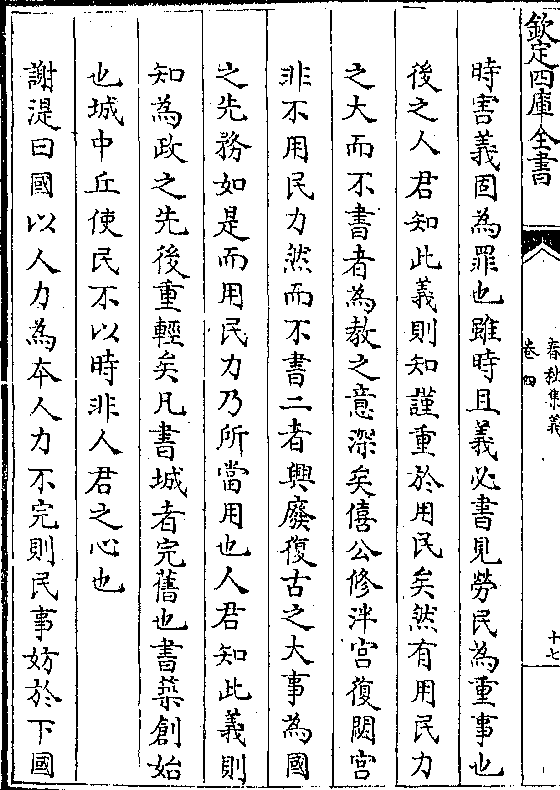 欽定四庫全書
春秋集義
卷四
十七
時害義固為罪也雖時且義必書見勞民為重事也
後之人君知此義則知謹重於用民矣然有用民力
之大而不書者為教之意深矣僖公修泮宮復閟宮
非不用民力然而不書二者興廢復古之大事為國
之先務如是而用民力乃所當用也人君知此義則
知為政之先後重輕矣凡書城者完舊也書築創始
也城中丘使民不以時非人君之心也
謝湜曰國以人力為本人力不完則民事妨於下國